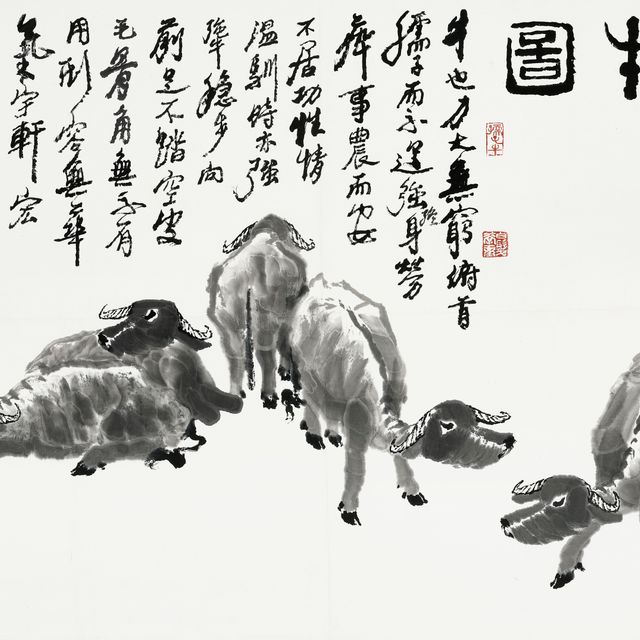 圖
牛也力大無窮俯首
孺子而不逞强終身勞
瘁事農而安
不居功性情
温馴時亦强
犟穩步向
前足不踏空皮
毛骨角無不有
用形容無華
氣宇軒宏